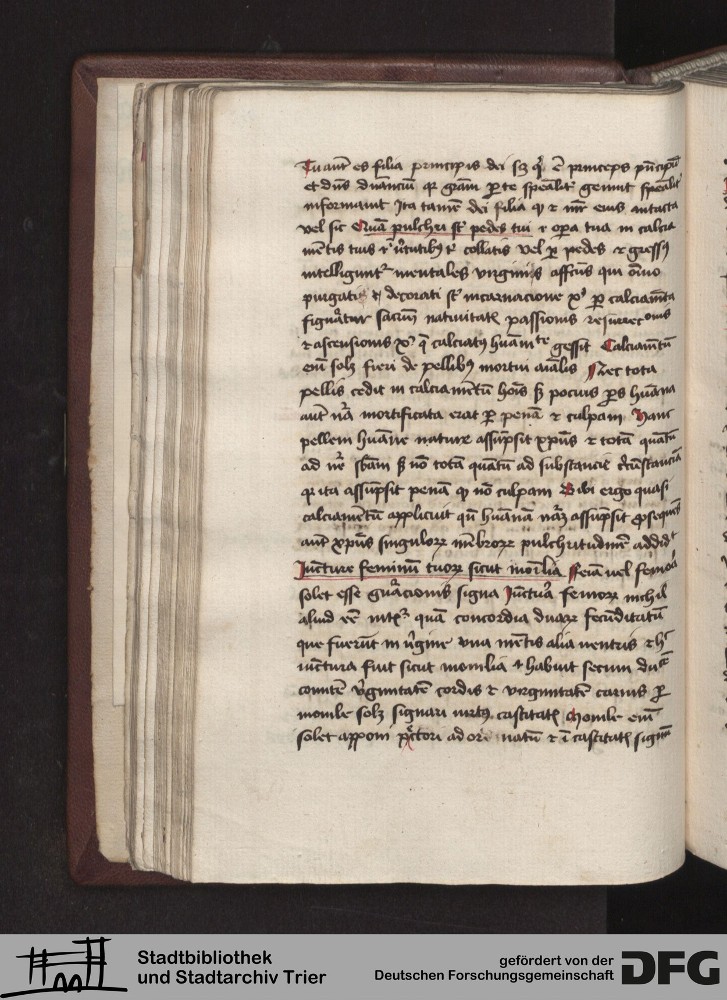 Tu aut es filia principis dei sz qr e princeps pncipu
et dns dnanciu qr gram p te spealit genuit spealit
informauit Ita tame dei filia qr r mr eius intacta
vel sic Qua pulchri st pedes tui r opa tua in calcia
mentis tuis r vtutibus t collatis vel p pedes r gressus
intelliguntr mentales virginis affcus qui oino
purgati r decorati st incarnacione xi p calciamta
figuratur sacrum natiuitatis passionis resurreconis
r ascensionis xi q calciatus humaite gessit Calciamtu
em solz fieri de pellibus mortui aialis Nec tota
pellis cedit in calciamentu hois sz pocius ps humana
aut na mortificata erat p pena r culpam Hanc
pellem humane nature assupsit xpus r tota quatu
ad nre sbam sz no tota quatu ad substancie circustancia
qr ita assupsit penam qr no culpam Sibi ergo quasi
calciamentu applicuit qn humana naz assupsit psequens
aut xpus singulorz mebrorz pulchritudine addidit
Iuncture feminu tuorz sicut monilia Feia uel femora
solet esse gnacionis signa Iunctura femorz nichil
aliud e e mtr quam concordia duarz fecunditatu
que fuerut in vgine vna mentis alia uentris r hr
iunctura fuit sicut monilia r habuit secum duce
comite vginitate cordis r virginitate carnis p
monile solz signari virtus castitatis Monile em
solet apponi pectori ad ornatu r i castitatis signum
Stadtbibliothek
und Stadtarchiv Trier
gefördert von der
Deutschen Forschungsgemeinschaft
DFG